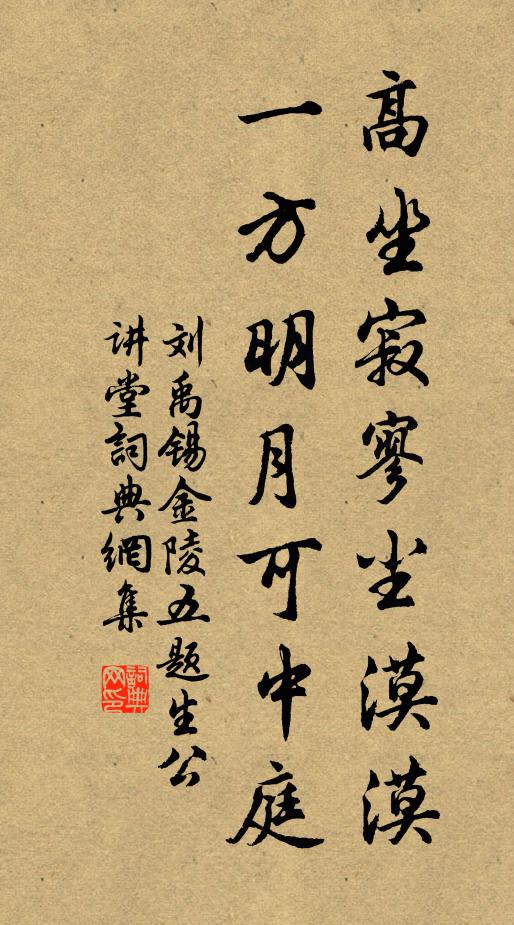 高坐寂寥尘漠漠
一方明月可中庭
刘禹锡金陵五题生公
讲堂詞典網集
詞典
网印